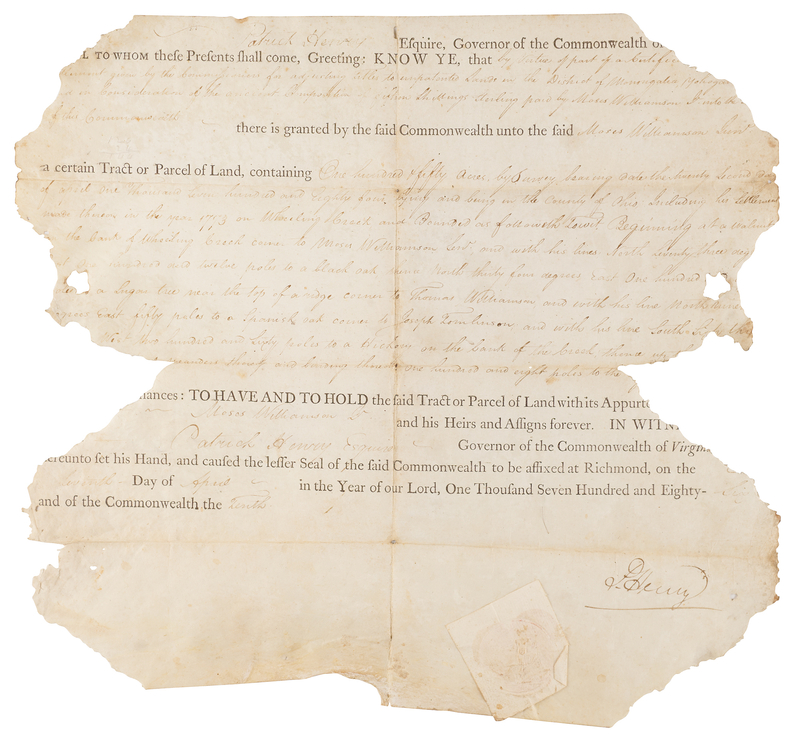 Patrick Henry Esquire, Governor of the Commonwealth of
L TO WHOM theſe Preſents ſhall come, Greeting: KNOW YE, that by virtue of part of a Certific
given by the Commissioners for adjusting titles to unpatented Lands in the District of Monongalia Yohogan
in Consideration of the ancient Composition of Shillings Sterling paid by Moses Williamson into the
this Commonwealth there is granted by the ſaid Commonwealth unto the ſaid Moses Williamson Senr
a certain Tract or Parcel of Land, containing One hundred & fifty Acres by Survey bearing date the twenty second day
One thousand Seven hundred and eighty four, lying and being in the County of Ohio Including his Settlement
made thereon in the year 1773 on Wheeling Creek and Bounded as followeth Towit Beginning at a walnut
the bank of Wheeling Creek corner to Moses Williamson Senr and with his lines North seventy three deg
one hundred and twelve poles to a black oak North thirty four degrees East One hundred
a Sugar tree near the top of a ridge corner to Thomas Williamson and with his line North
East fifty poles to a Spanish oak corner to Joseph Tomlinson and with his line South
West two hundred and sixty poles to a on the bank of the Creek thence up
meanders thereof and binding thereon one hundred and eight poles to the
nances: TO HAVE AND TO HOLD the ſaid Tract or Parcel of Land with its Appurte
Moses Williamson Sr and his Heirs and Aſſigns forever. IN WITN
Patrick Henry Esquire Governor of the Commonwealth of Virgin
ereunto ſet his Hand, and cauſed the leſſer Seal of the ſaid Commonwealth to be affixed at Richmond, on the
Day of April in the Year of our Lord, One Thouſand Seven Hundred and Eighty-
and of the Commonwealth the tenth
P. Henry